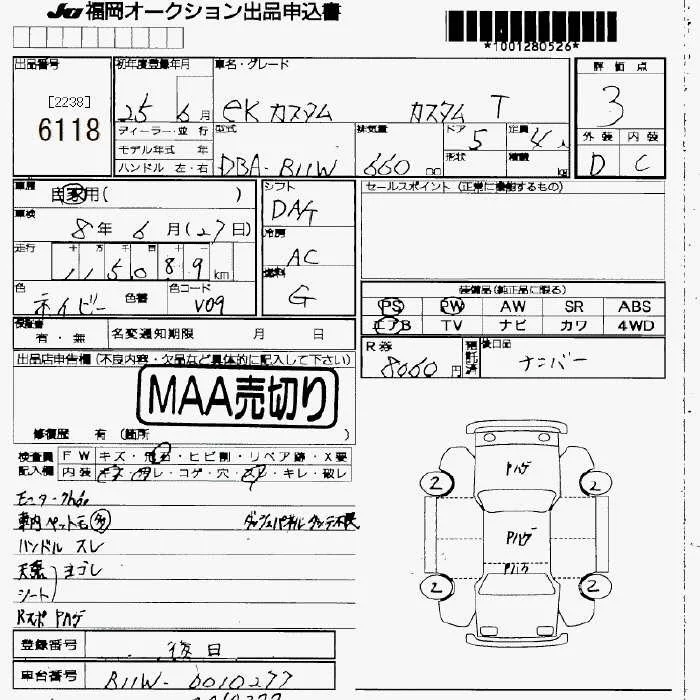 JU 福岡オークション出品申込書
*1001280526*
出品番号 [2238] 6118
初年度登録年月 25 6月
車名・グレード eKカスタム カスタム T
評価点 3
外装 D 内装 C
ディーラー・並行
モデル年式 年
ハンドル 左・右
型式 DBA-B11W
排気量 660 cc
ドア 5
形状
定員 4人
積載 kg
車歴 自家用( )
車検 8年 6月(27日)
走行 十 万 千 百 十 一
115089 km
色 ネイビー 色番 色コード V09
シフト DAT
冷房 AC
燃料 G
セールスポイント (正常に機能するもの)
装備品(純正品に限る)
PS PW AW SR ABS
エアB TV ナビ カワ 4WD
保証書 有・無 名変通知期限 月 日
R券 8060円 預託済
後日品 ナンバー
出品店申告欄 (不良内容・欠品など具体的に記入して下さい)
MAA売切り
修復歴 有 (箇所 )
検査員記入欄
FW キズ・飛石・ヒビ割・リペア跡・X要
内装 キズ・スレ・コゲ・穴・ヨゴレ・キレ・破レ
車内ペット毛 多
ハンドル スレ
天張
シート ヨゴレ
Rスポ Pハゲ
Pハゲ
Pハゲ
Pハゲ
2 2
2 2
登録番号 後日
車台番号 B11W-0010277